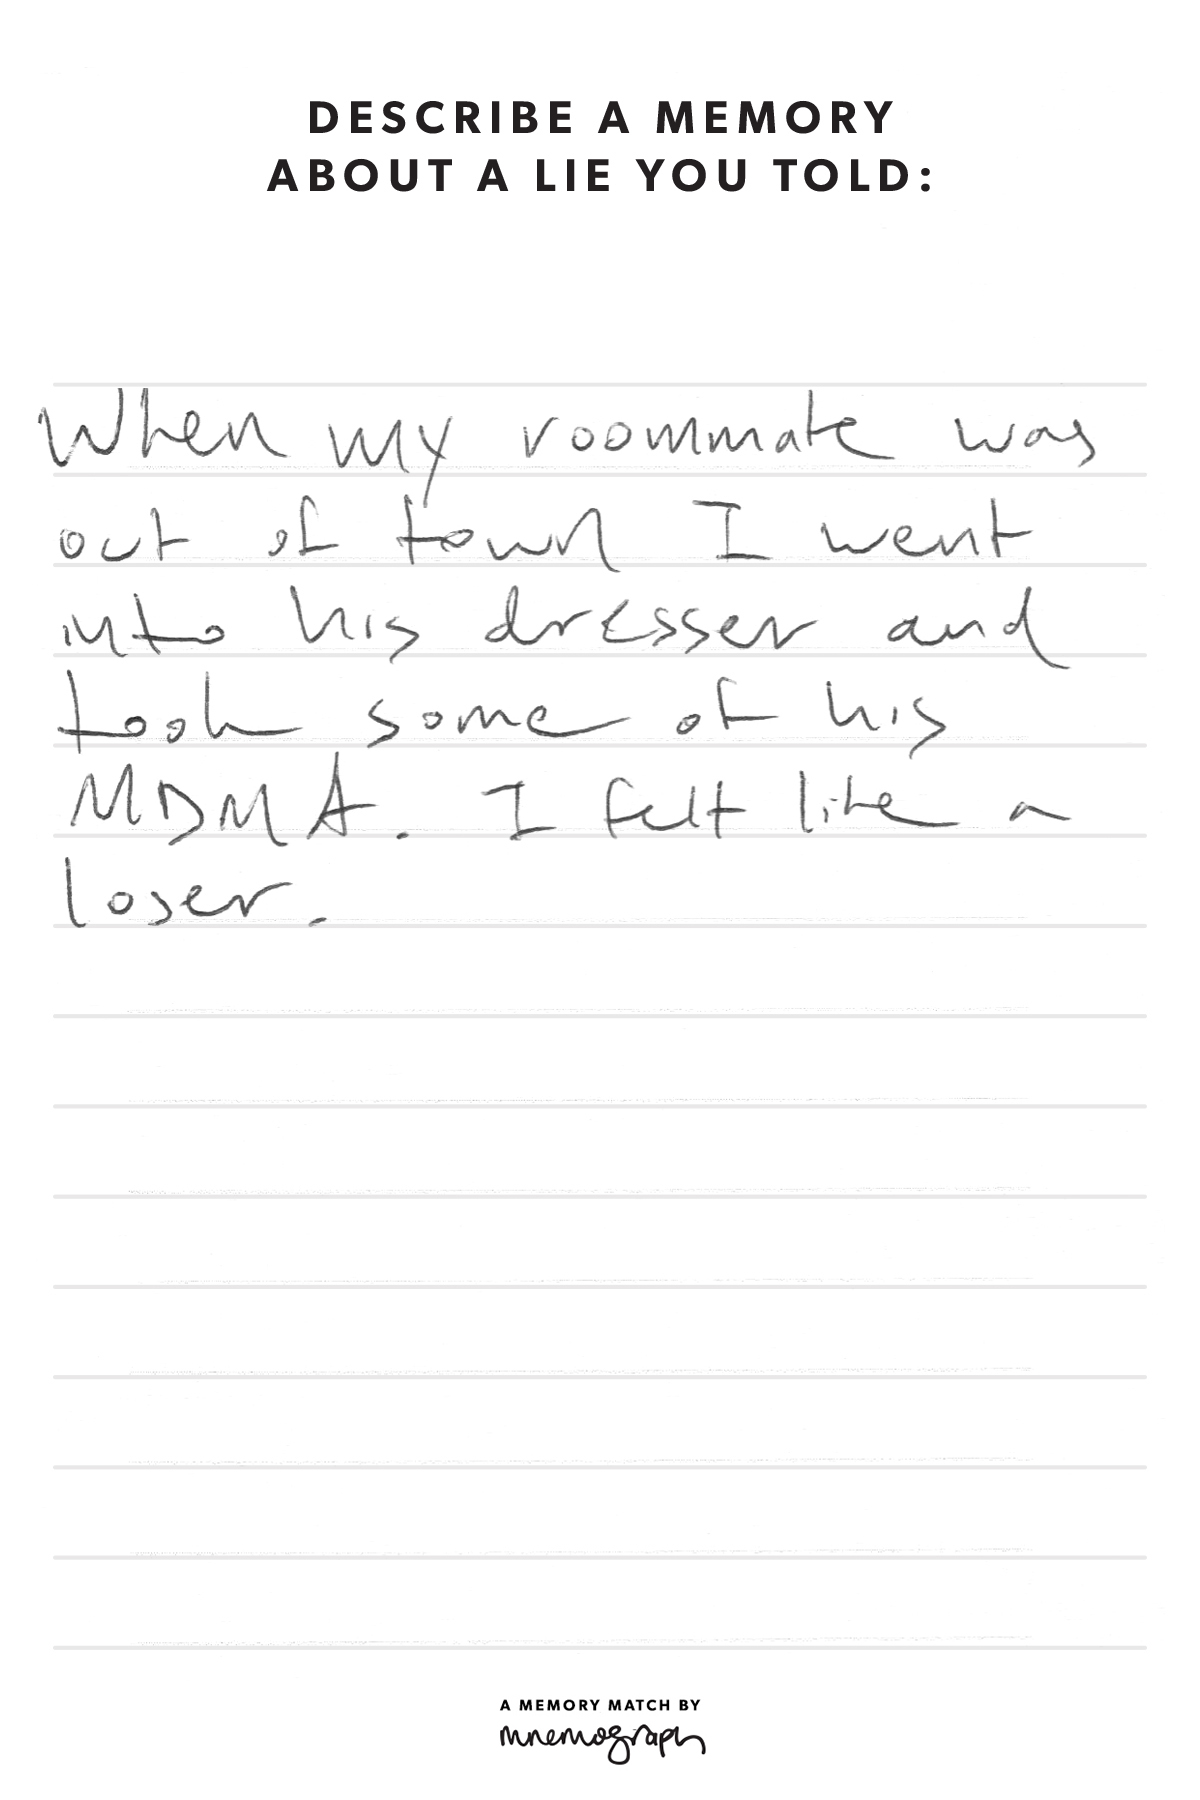 DESCRIBE A MEMORY
ABOUT A LIE YOU TOLD:
When my roommate was
out of town I went
into his dresser and
took some of his
MDMA. I felt like a
loser.
A MEMORY MATCH BY
mnemograph